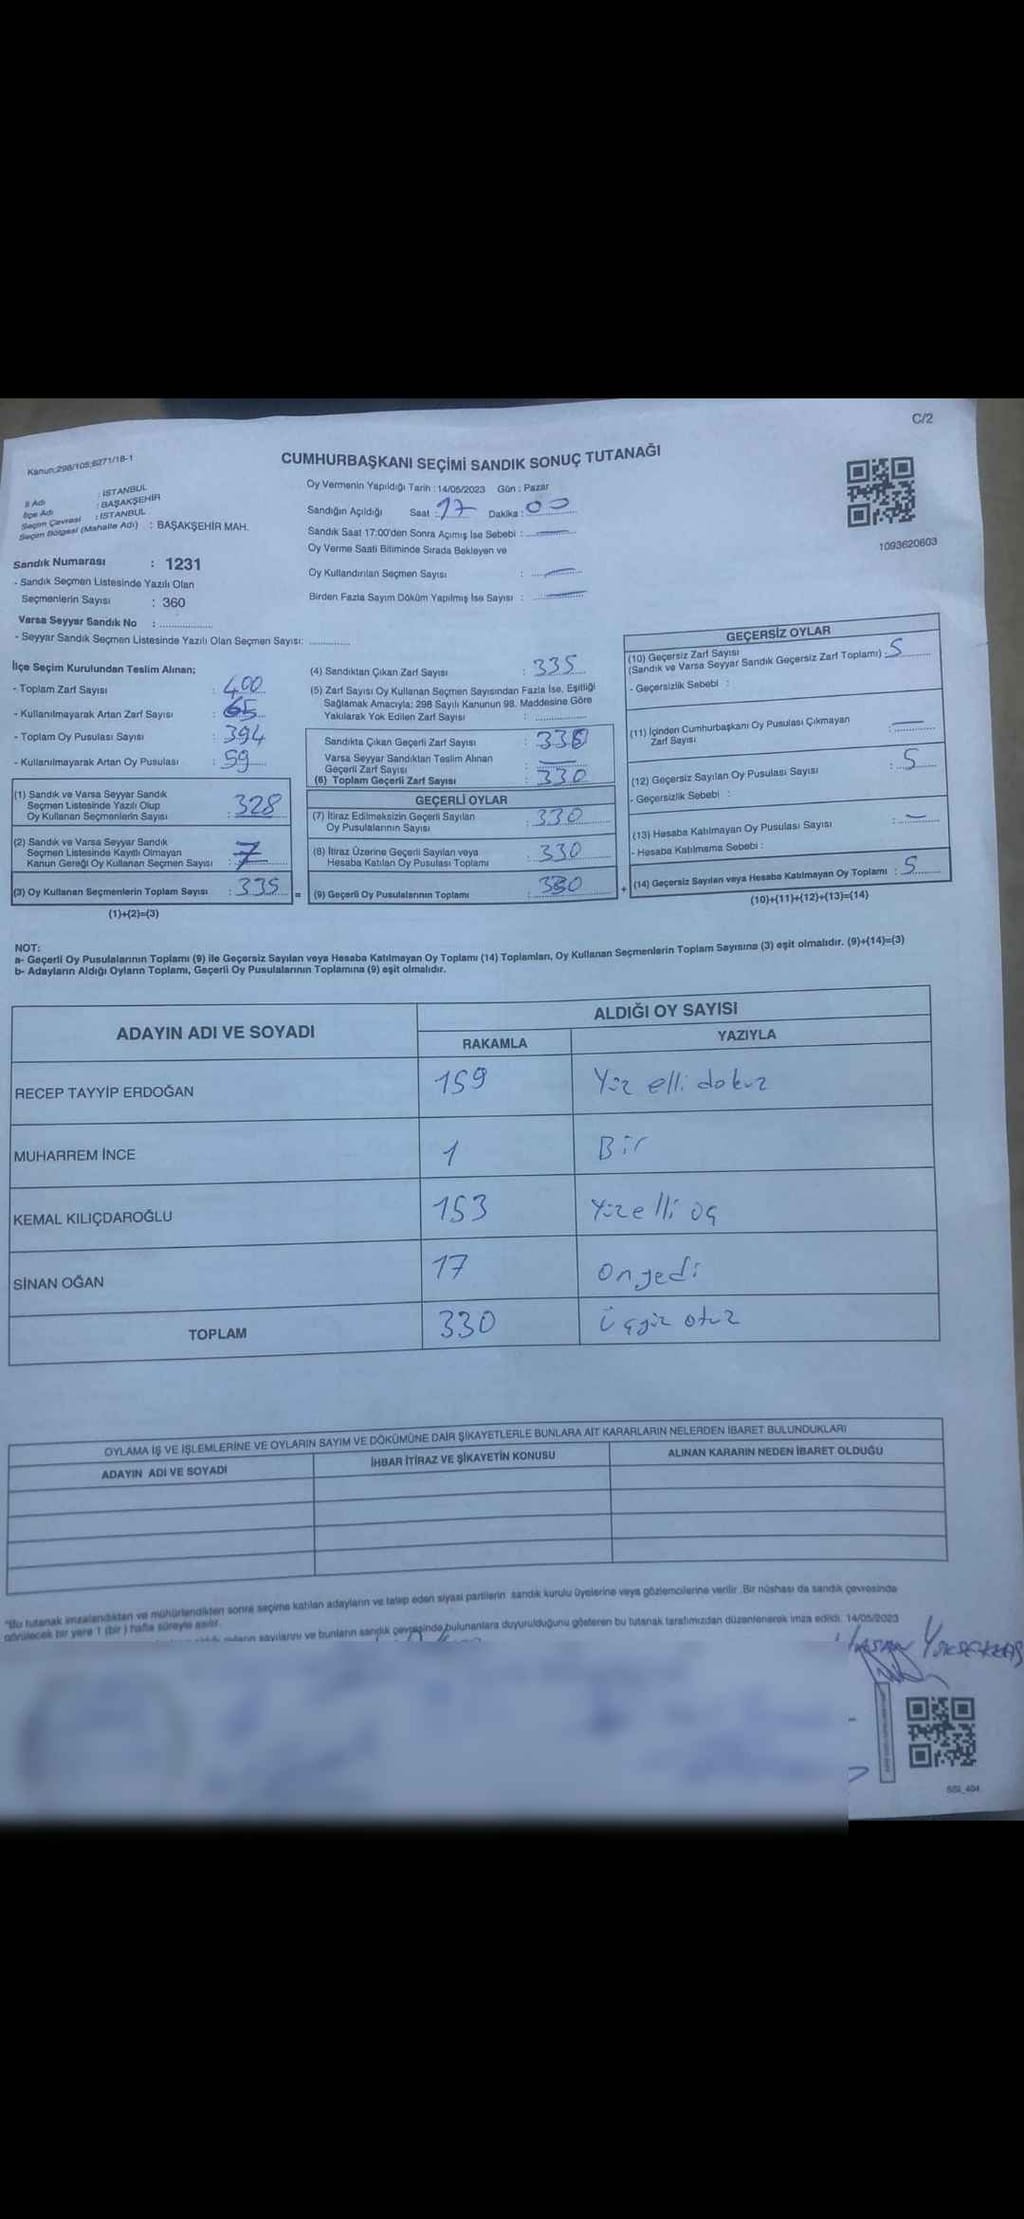 C/2
Kanun;298/105;6271/18-1
CUMHURBAŞKANI SEÇİMİ SANDIK SONUÇ TUTANAĞI
İl Adı : İSTANBUL
İlçe Adı : BAŞAKŞEHİR
Seçim Çevresi : İSTANBUL
Seçim Bölgesi (Mahalle Adı) : BAŞAKŞEHİR MAH.
Sandık Numarası : 1231
- Sandık Seçmen Listesinde Yazılı Olan
Seçmenlerin Sayısı : 360
Varsa Seyyar Sandık No :
- Seyyar Sandık Seçmen Listesinde Yazılı Olan Seçmen Sayısı:
Oy Vermenin Yapıldığı Tarih : 14/05/2023 Gün : Pazar
Sandığın Açıldığı Saat : 17 Dakika : 00
Sandık Saat 17:00'den Sonra Açımış İse Sebebi :
Oy Verme Saati Bitiminde Sırada Bekleyen ve
Oy Kullandırılan Seçmen Sayısı :
Birden Fazla Sayım Döküm Yapılmış İse Sayısı :
1093620603
İlçe Seçim Kurulundan Teslim Alınan;
- Toplam Zarf Sayısı : 400
- Kullanılmayarak Artan Zarf Sayısı : 65
- Toplam Oy Pusulası Sayısı : 394
- Kullanılmayarak Artan Oy Pusulası : 59
(1) Sandık ve Varsa Seyyar Sandık
Seçmen Listesinde Yazılı Olup
Oy Kullanan Seçmenlerin Sayısı : 328
(2) Sandık ve Varsa Seyyar Sandık
Seçmen Listesinde Kayıtlı Olmayan
Kanun Gereği Oy Kullanan Seçmen Sayısı : 7
(3) Oy Kullanan Seçmenlerin Toplam Sayısı : 335
(1)+(2)=(3)
(4) Sandıktan Çıkan Zarf Sayısı : 335
(5) Zarf Sayısı Oy Kullanan Seçmen Sayısından Fazla İse, Eşitliği
Sağlamak Amacıyla; 298 Sayılı Kanunun 98. Maddesine Göre
Yakılarak Yok Edilen Zarf Sayısı :
Sandıkta Çıkan Geçerli Zarf Sayısı :
Varsa Seyyar Sandıktan Teslim Alınan
Geçerli Zarf Sayısı :
(6) Toplam Geçerli Zarf Sayısı : 330
GEÇERLİ OYLAR
(7) İtiraz Edilmeksizin Geçerli Sayılan
Oy Pusulalarının Sayısı : 330
(8) İtiraz Üzerine Geçerli Sayılan veya
Hesaba Katılan Oy Pusulası Toplamı : 330
= (9) Geçerli Oy Pusulalarının Toplamı : 330 +
GEÇERSİZ OYLAR
(10) Geçersiz Zarf Sayısı
(Sandık ve Varsa Seyyar Sandık Geçersiz Zarf Toplamı) : 5
- Geçersizlik Sebebi :
(11) İçinden Cumhurbaşkanı Oy Pusulası Çıkmayan
Zarf Sayısı : —
(12) Geçersiz Sayılan Oy Pusulası Sayısı : 5
- Geçersizlik Sebebi :
(13) Hesaba Katılmayan Oy Pusulası Sayısı : —
- Hesaba Katılmama Sebebi :
(14) Geçersiz Sayılan veya Hesaba Katılmayan Oy Toplamı : 5
(10)+(11)+(12)+(13)=(14)
NOT:
a- Geçerli Oy Pusulalarının Toplamı (9) ile Geçersiz Sayılan veya Hesaba Katılmayan Oy Toplamı (14) Toplamları, Oy Kullanan Seçmenlerin Toplam Sayısına (3) eşit olmalıdır. (9)+(14)=(3)
b- Adayların Aldığı Oyların Toplamı, Geçerli Oy Pusulalarının Toplamına (9) eşit olmalıdır.
ADAYIN ADI VE SOYADI ALDIĞI OY SAYISI
RAKAMLA YAZIYLA
RECEP TAYYİP ERDOĞAN 159 Yüz elli dokuz
MUHARREM İNCE 1 Bir
KEMAL KILIÇDAROĞLU 153 Yüz elli üç
SİNAN OĞAN 17 on yedi
TOPLAM 330 üçyüz otuz
OYLAMA İŞ VE İŞLEMLERİNE VE OYLARIN SAYIM VE DÖKÜMÜNE DAİR ŞİKAYETLERLE BUNLARA AİT KARARLARIN NELERDEN İBARET BULUNDUKLARI
ADAYIN ADI VE SOYADI İHBAR İTİRAZ VE ŞİKAYETİN KONUSU ALINAN KARARIN NEDEN İBARET OLDUĞU
"Bu tutanak imzalandıktan ve mühürlendikten sonra seçime katılan adayların ve talep eden siyasi partilerin sandık kurulu üyelerine veya gözlemcilerine verilir. Bir nüshası da sandık çevresinde
görülecek bir yere 1 (bir) hafta süreyle asılır.
sayılarını ve bunların sandık çevresinde bulunanlara duyurulduğunu gösteren bu tutanak tarafımızdan düzenlenerek imza edildi. 14/05/2023